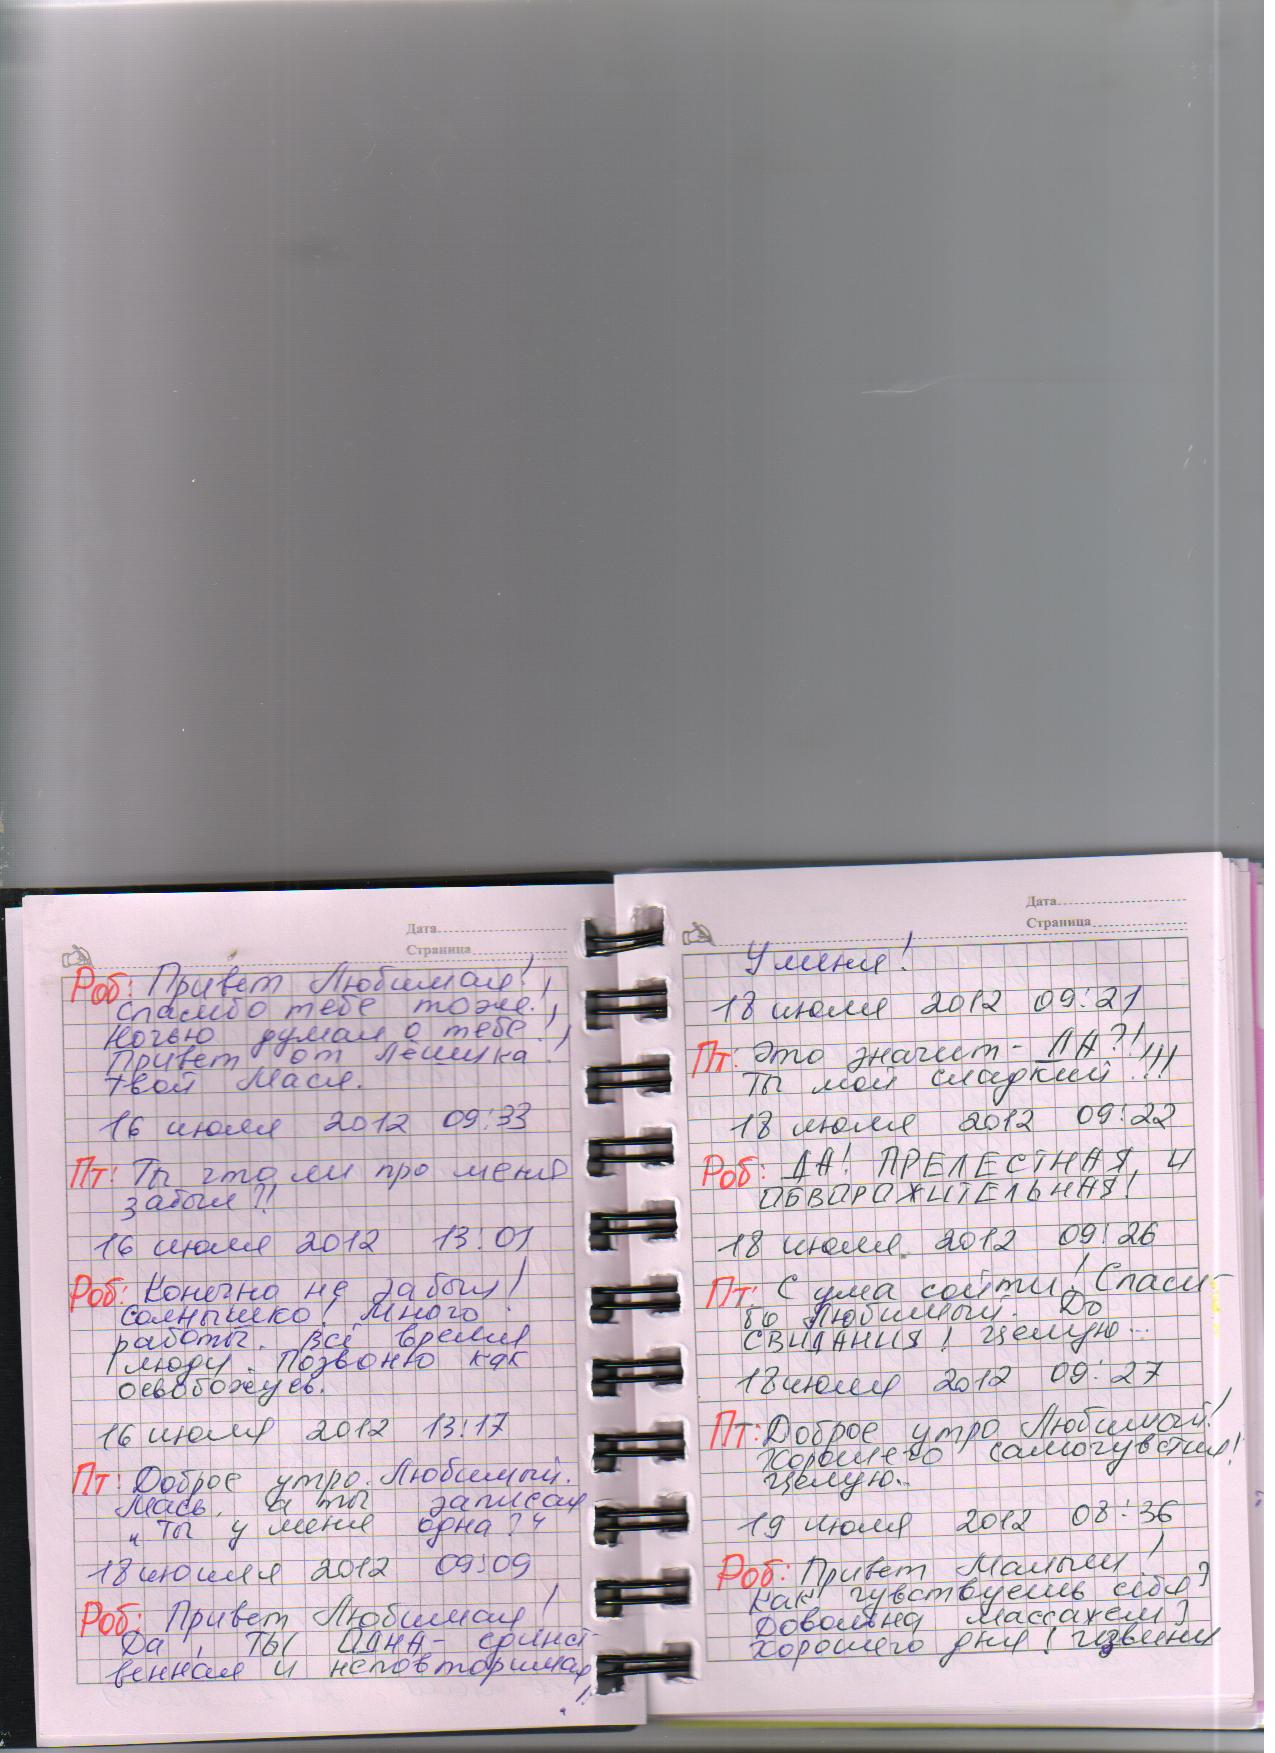 Дата
Страница
Роб: Привет Любимая!
Спасибо тебе тоже!
Ночью думал о тебе!
Привет от Лёшика!
Твой Мася.
16 июля 2012 09:33
Пт: Ты что ли про меня
забыл?!
16 июля 2012 13:01
Роб: Конечно не забыл!
Солнышко! Много
работы. Всё время
люди. Позвоню как
освобожусь.
16 июля 2012 13:17
Пт: Доброе утро Любимый.
Мась, а ты записал
"Ты у меня одна?"
18 июля 2012 09:09
Роб: Привет Любимая!
Да, ТЫ ОДНА - единст-
венная и неповторимая
!
Дата
Страница
У меня!
18 июля 2012 09:21
Пт: Это значит - ДА?!
Ты мой сладкий!!!
18 июля 2012 09:22
Роб: ДА! ПРЕЛЕСТНАЯ И
ОБВОРОЖИТЕЛЬНАЯ!
18 июля 2012 09:26
Пт: С ума сойти! Спаси-
бо Любимый. До
СВИДАНИЯ! Целую...
18 июля 2012 09:27
Пт: Доброе утро Любимый!
Хорошего самочувствия!
Целую...
19 июля 2012 08:36
Роб: Привет Малыш!
Как чувствуешь себя?
Довольна массажем?
Хорошего дня! Извини